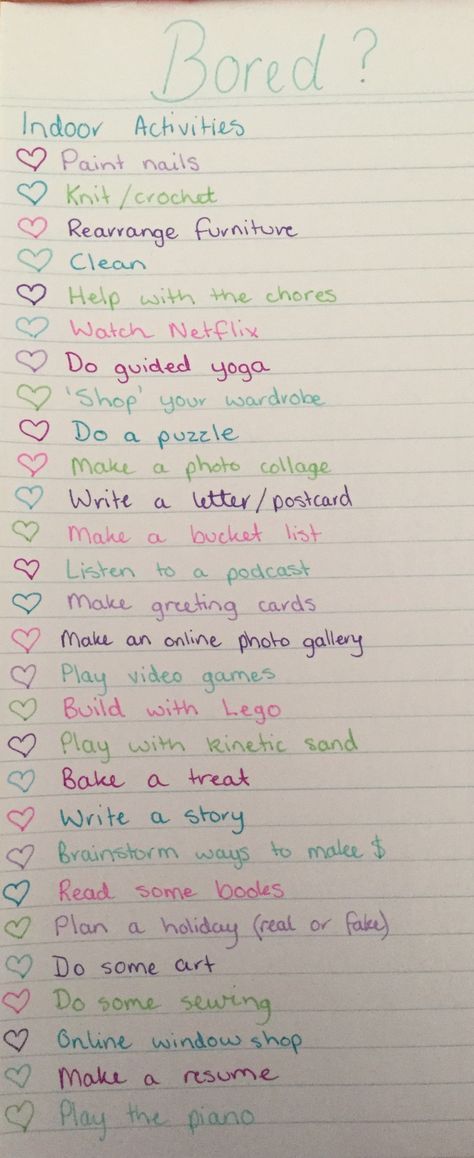 Bored?
Indoor Activities
Paint nails
Knit/crochet
Rearrange furniture
Clean
Help with the chores
Watch Netflix
Do guided yoga
'Shop' your wardrobe
Do a puzzle
Make a photo collage
Write a letter/postcard
Make a bucket list
Listen to a podcast
Make greeting cards
Make an online photo gallery
Play video games
Build with Lego
Play with kinetic sand
Bake a treat
Write a story
Brainstorm ways to make $
Read some books
Plan a holiday (real or fake)
Do some art
Do some sewing
Online window shop
Make a resume
Play the piano